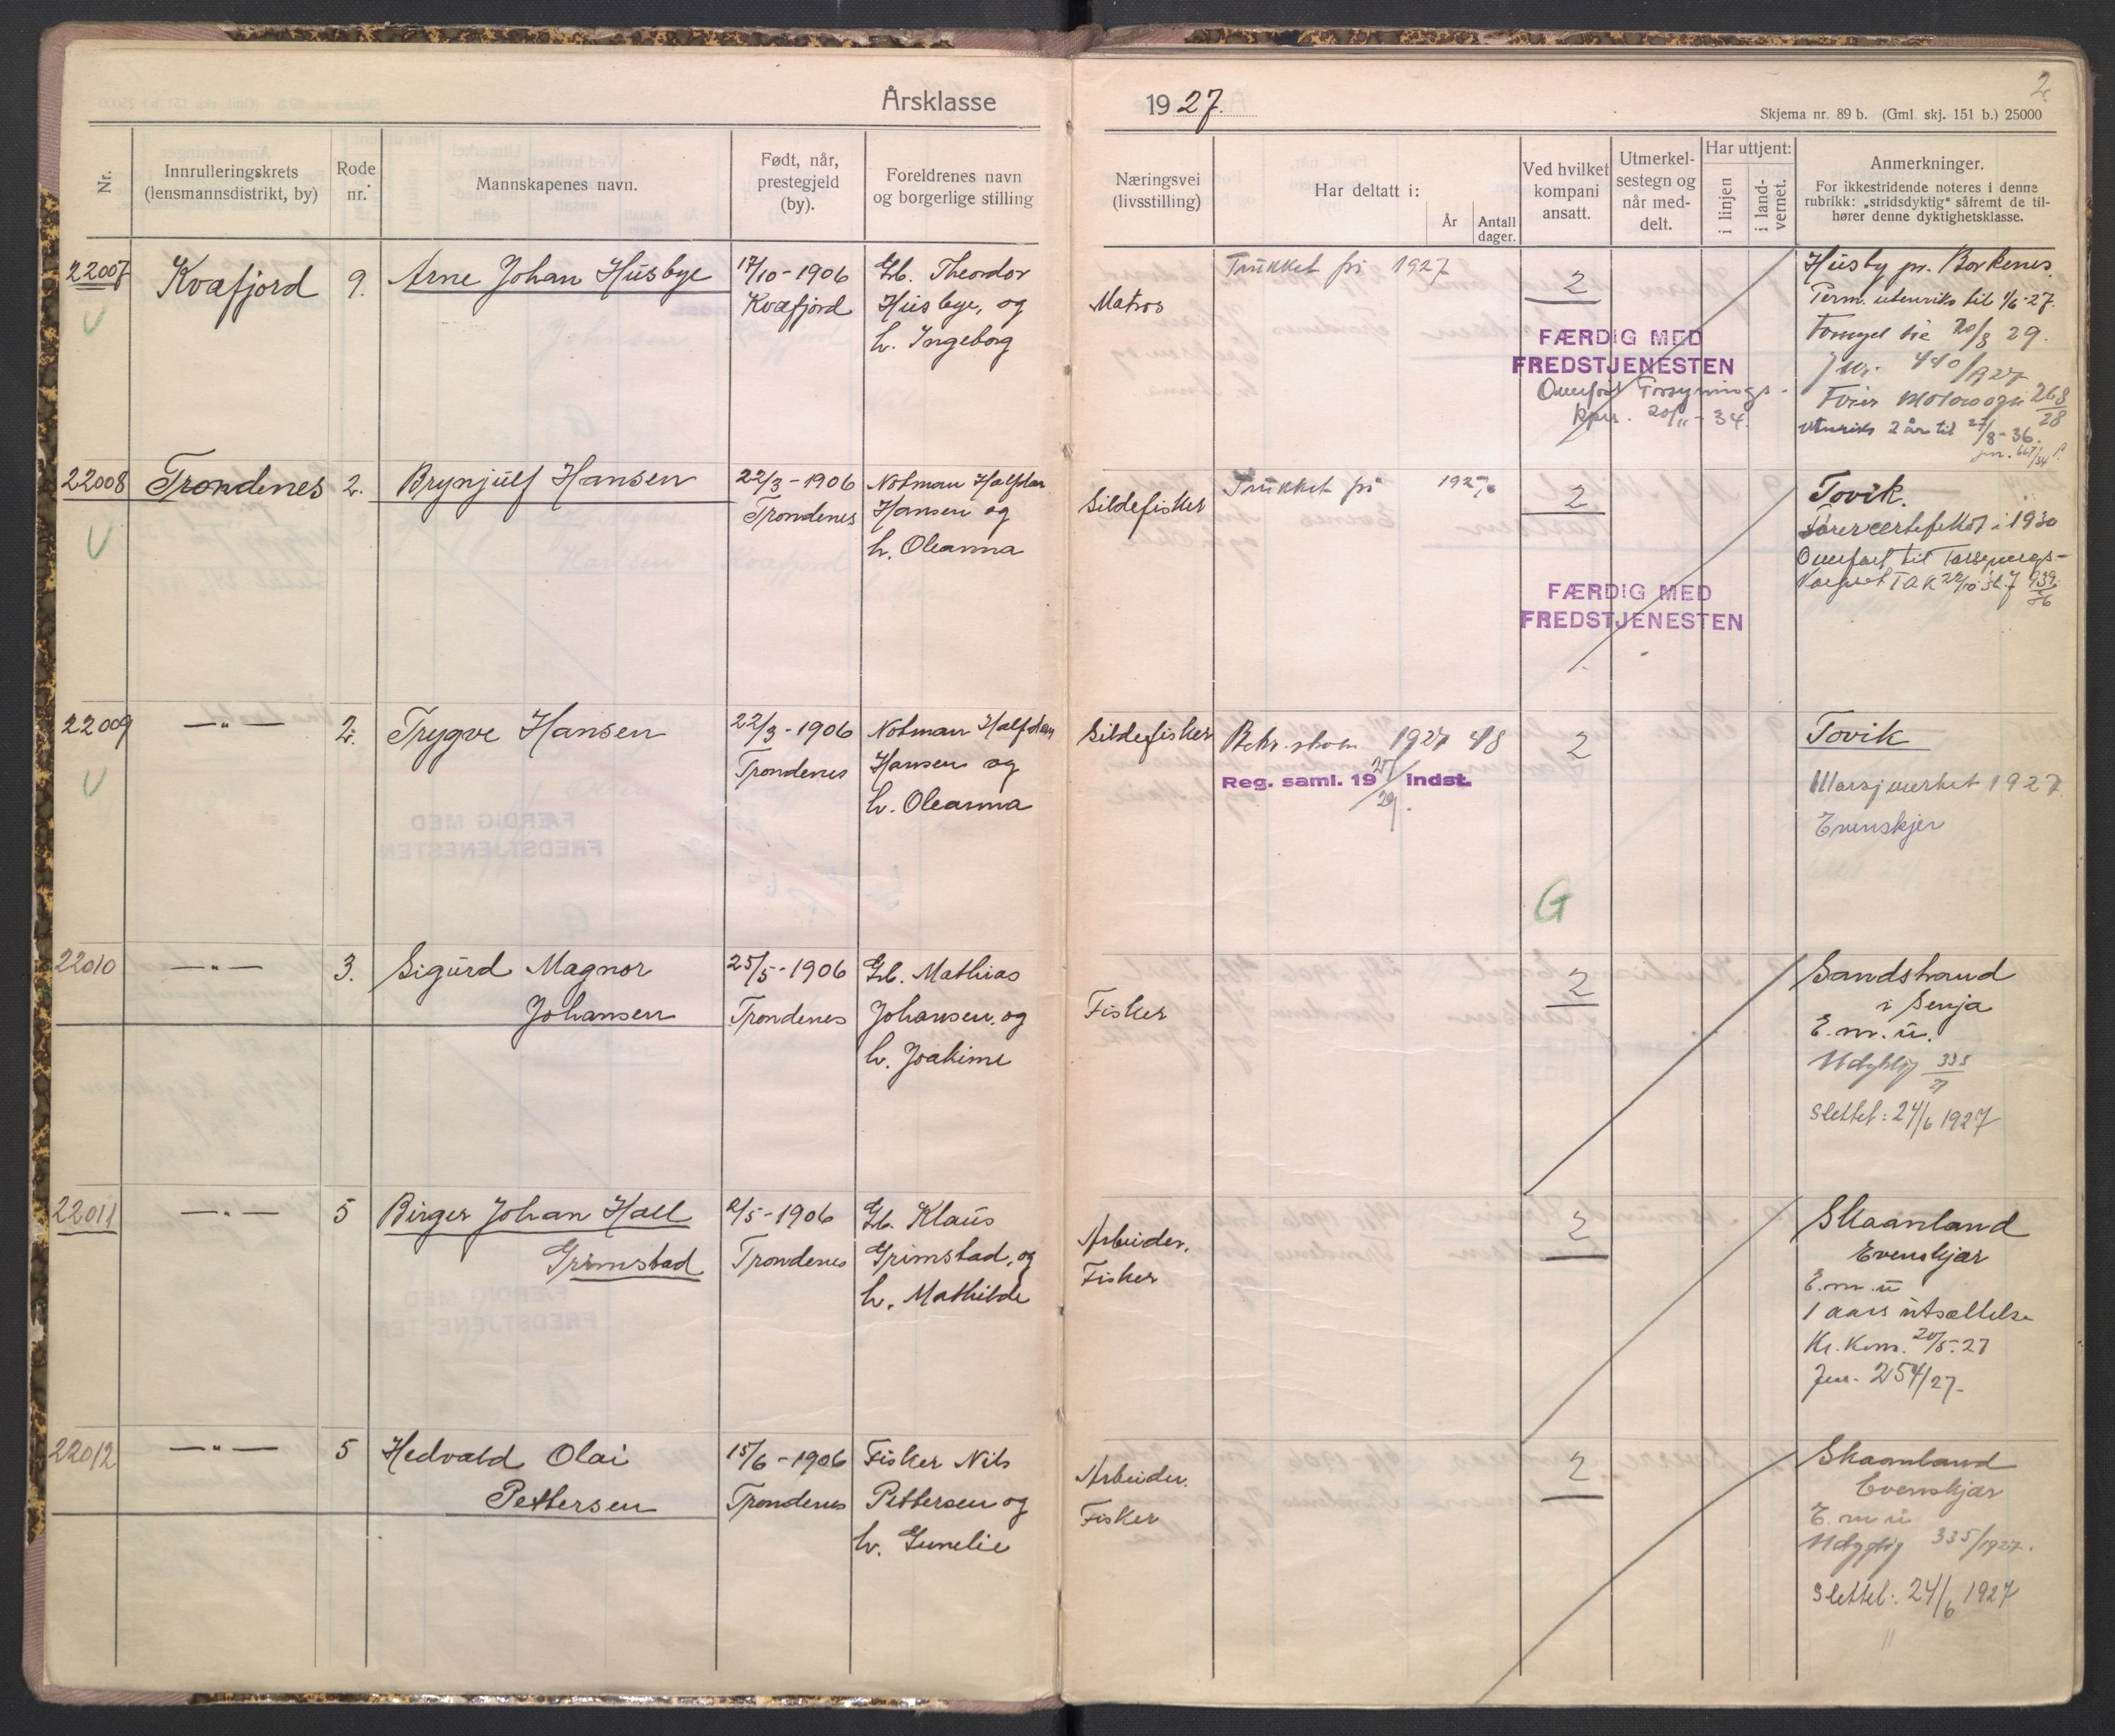 Årsklasse
Nr.
Innrulleringskrets
(lensmannsdistrikt, by)
Rode
nr.
Mannskapenes navn.
Født, når,
prestegjeld
(by).
Foreldrenes navn
og borgerlige stilling
22007
Kvæfjord
9.
Arne Johan Husbye
17/10-1906
Kvæfjord
Gb. Theodor
Husbye, og
h. Ingeborg
22008
Trondenes
2.
Brynjulf Hansen
22/3-1906
Trondenes
Notman Halfdan
Hansen og
h. Oleanna
22009
—"—
2.
Trygve Hansen
22/3-1906
Trondenes
Notman Halfdan
Hansen og
h. Oleanna
22010
—"—
3.
Sigurd Magnor
Johansen
25/5-1906
Trondenes
Gb. Mathias
Johansen, og
h. Joakime
22011
—"—
5
Birger Johan Hall
Grimstad
2/5-1906
Trondenes
Gb. Klaus
Grimstad, og
h. Mathilde
22012
—"—
5
Hedvald Olai
Pettersen
15/6-1906
Trondenes
Fisker Nils
Pettersen og
h. Gunelie
1927.
2.
Skjema nr. 89 b. (Gml. skj. 151 b.) 25000
Næringsvei
(livsstilling)
Har deltatt i:
År
Antall
dager.
Ved hvilket
kompani
ansatt.
Utmerkel-
sestegn og
når med-
delt.
Har uttjent:
i linjen
i land-
vernet.
Anmerkninger.
For ikkestridende noteres i denne
rubrikk: „stridsdyktig" såfremt de til-
hører denne dyktighetsklasse.
Matros
Trukket fri 1927
2
FÆRDIG MED
FREDSTJENESTEN
Overført Forsynings-
kpn. 20/11-34.
Husby pr. Borkenes.
Perm. utenriks til 1/6-27.
29.
440/1927
268/28
Utenriks 2 år til 27/8-36.
Sildefisker
Trukket fri 1927
2
FÆRDIG MED
FREDSTJENESTEN
Tovik.
i 1930
Overført til
Sildefisker
Rekr. skole 1927 48
Reg. saml. 19 27/29 indst.
2
G
Tovik
1927.
Evenskjer
Fisker
2
Sandstrand
i Senja
E.m.u.
Udyktig 335/27
Slettet: 24/6 1927
Arbeider.
Fisker
2
Skaanland
Evenskjær
E.m.u
1 aars utsættelse
Kr. Kom. 20/5-27
Jnr. 254/27
Arbeider.
Fisker
2
Skaanland
Evenskjær
E.m.u
Udygtig 335/1927.
Slettet: 24/6 1927